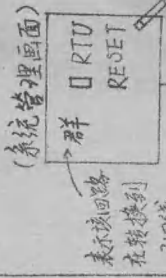 (系统管理画面)
群 □ RTU
RESET
表示该回路
在转接到